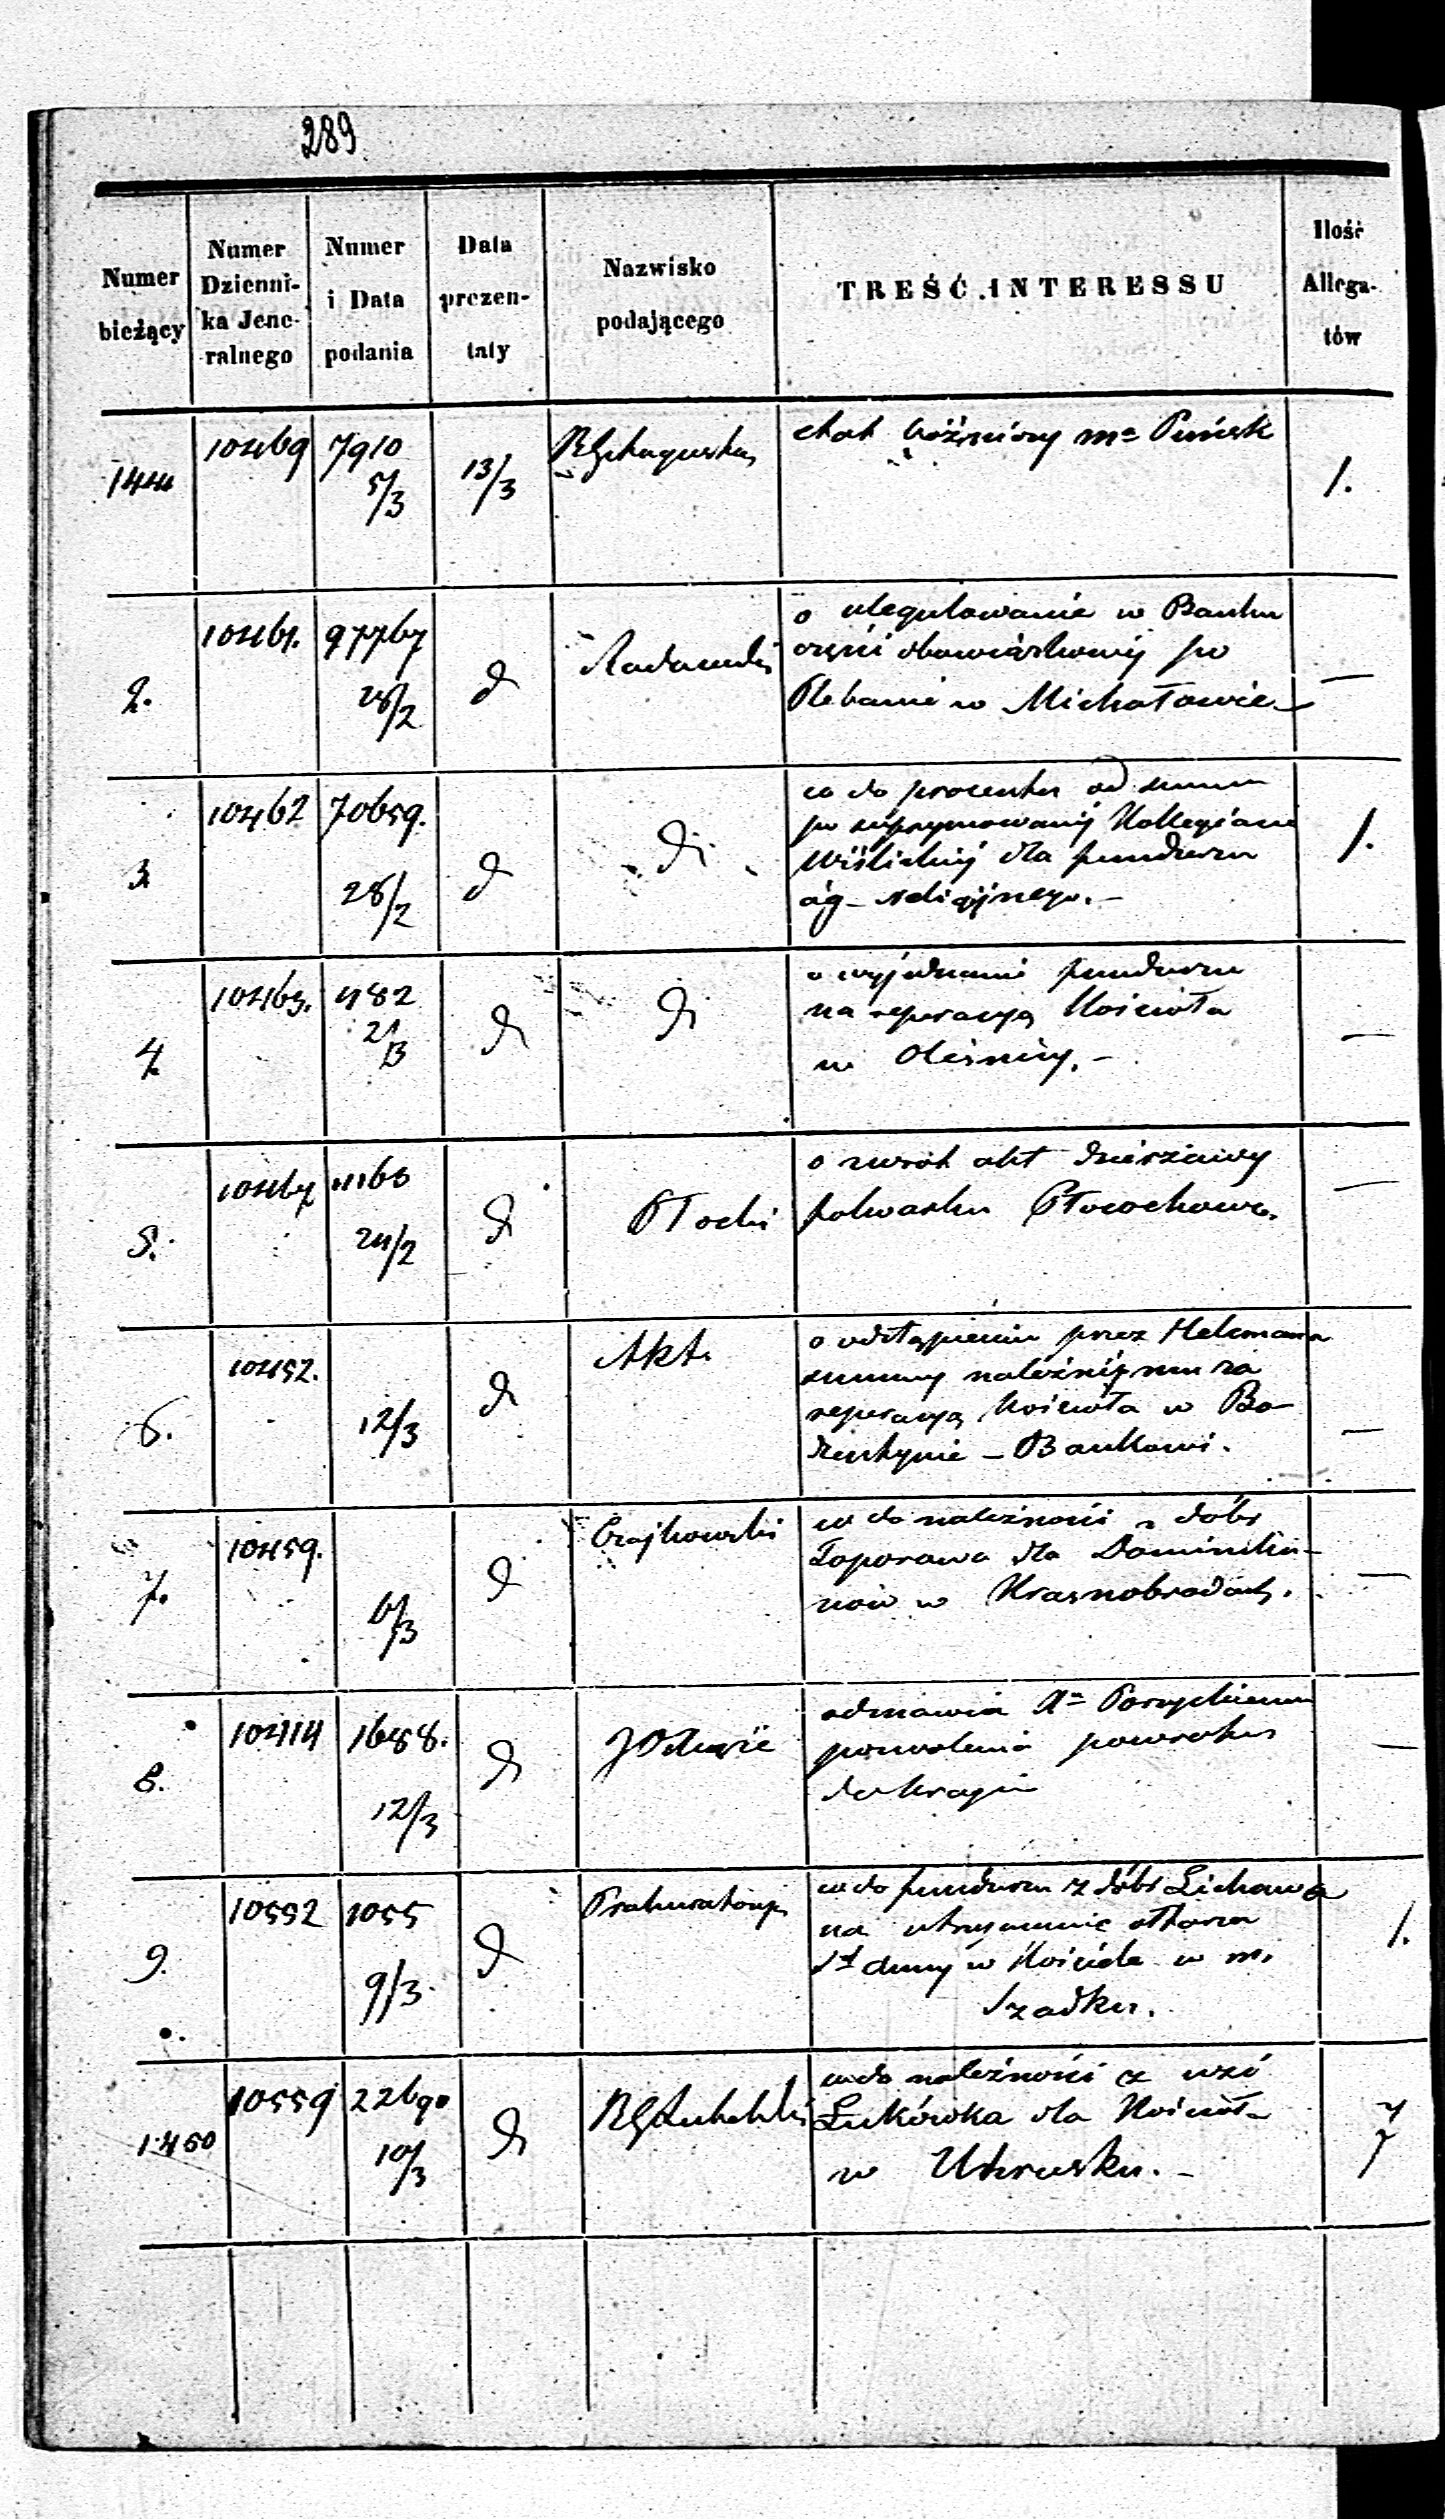 289
Numer bieżący
Numer Dzienni- ka Jene- ralnego
Numer i Data podania
Data prezen- taty
Nazwisko podającego
TREŚĆ INTERESSU
Ilość Allega- tów
144 10469 7910 5/3 13/3
etat bóżniczy ma Puńsk
1.
2. 10461. 97767 28/2 d Radomski
o uregulowanie w Banku
części obowiązkowej po
Plebanie w Michałowie
—
3 10462 70659. 28/2 d di
co do procentu od summ
po supprymowanej Kollegiacie
Wiślickiej dla funduszu
og- religijnego.-
1.
4. 10463. 482 2/13 di di
o wyjednanie funduszu
na reperacyą Kościoła
w Oleśnicy.-
—
5. 10467 24/2 di Płocki
o zwrot akt dzierżawy
folwarku
—
6. 10452. 12/3 di Akt.
o odstąpieniu przez Helcmana
summy należnej mu za
reperacyą Kościoła w Bo-
dzentynie – Bankowi.
—
7. 10459. 6/3 d Czajkowski
co do należności z dóbr
Toporowa dla Dominika-
nów w Krasnobrodach.
—
8. 10414 1688. 12/3 di
odmawia Xa
pozwolenia powrotu
do kraju
—
9. 10552 1055 9/3. di Prokuratorya
co do funduszu z dóbr Lichawa
na utrzymanie ołtarza
St Anny w Kościele w m.
Szadku.
1.
1450 10559 22690 10/3 di RGLubelski
co do należności z wsi
Lukówka dla Kościoła
w Uhrusku.-
7